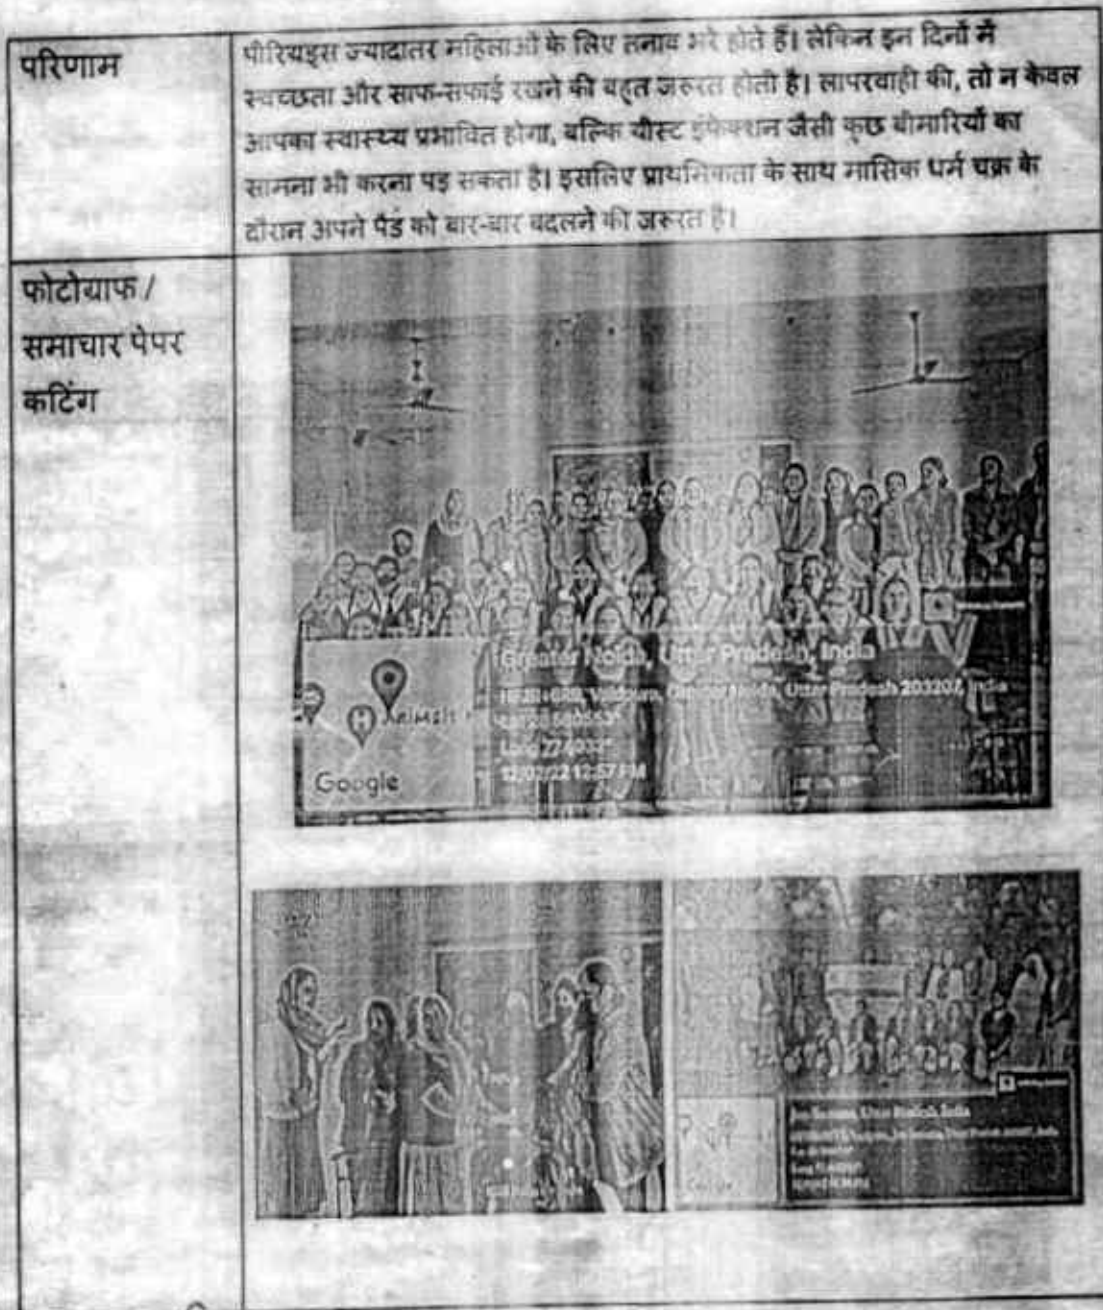 परिणाम
पीरियड्स ज्यादातर महिलाओं के लिए तनाव भरे होते हैं। लेकिन इन दिनों में
स्वच्छता और साफ-सफाई रखने की बहुत जरूरत होती है। लापरवाही की, तो न केवल
आपका स्वास्थ्य प्रभावित होगा, बल्कि यीस्ट इंफेक्शन जैसी कुछ बीमारियों का
सामना भी करना पड़ सकता है। इसलिए प्राथमिकता के साथ मासिक धर्म चक्र के
दौरान अपने पैड को बार-बार बदलने की जरूरत है।
फोटोग्राफ /
समाचार पेपर
कटिंग
Greater Noida, Uttar Pradesh, India
Greater Noida, Uttar Pradesh 203207, India
Long
12/02/22 12:57 PM
Google
Uttar Pradesh, India